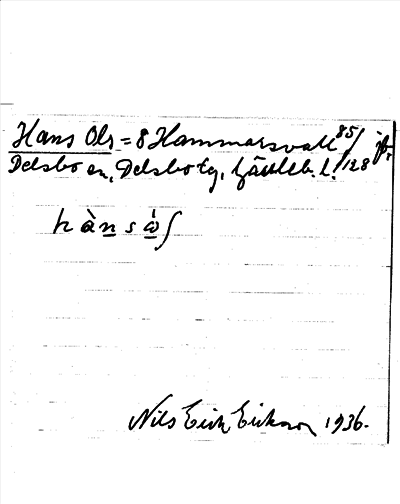 Hans Ols = 8 Hammarsvall 85/128 jfr
Delsbo sn, Delsbo tg, Gävleb. l.
hànsὼʃ
Nils Erik Erikson 1936.